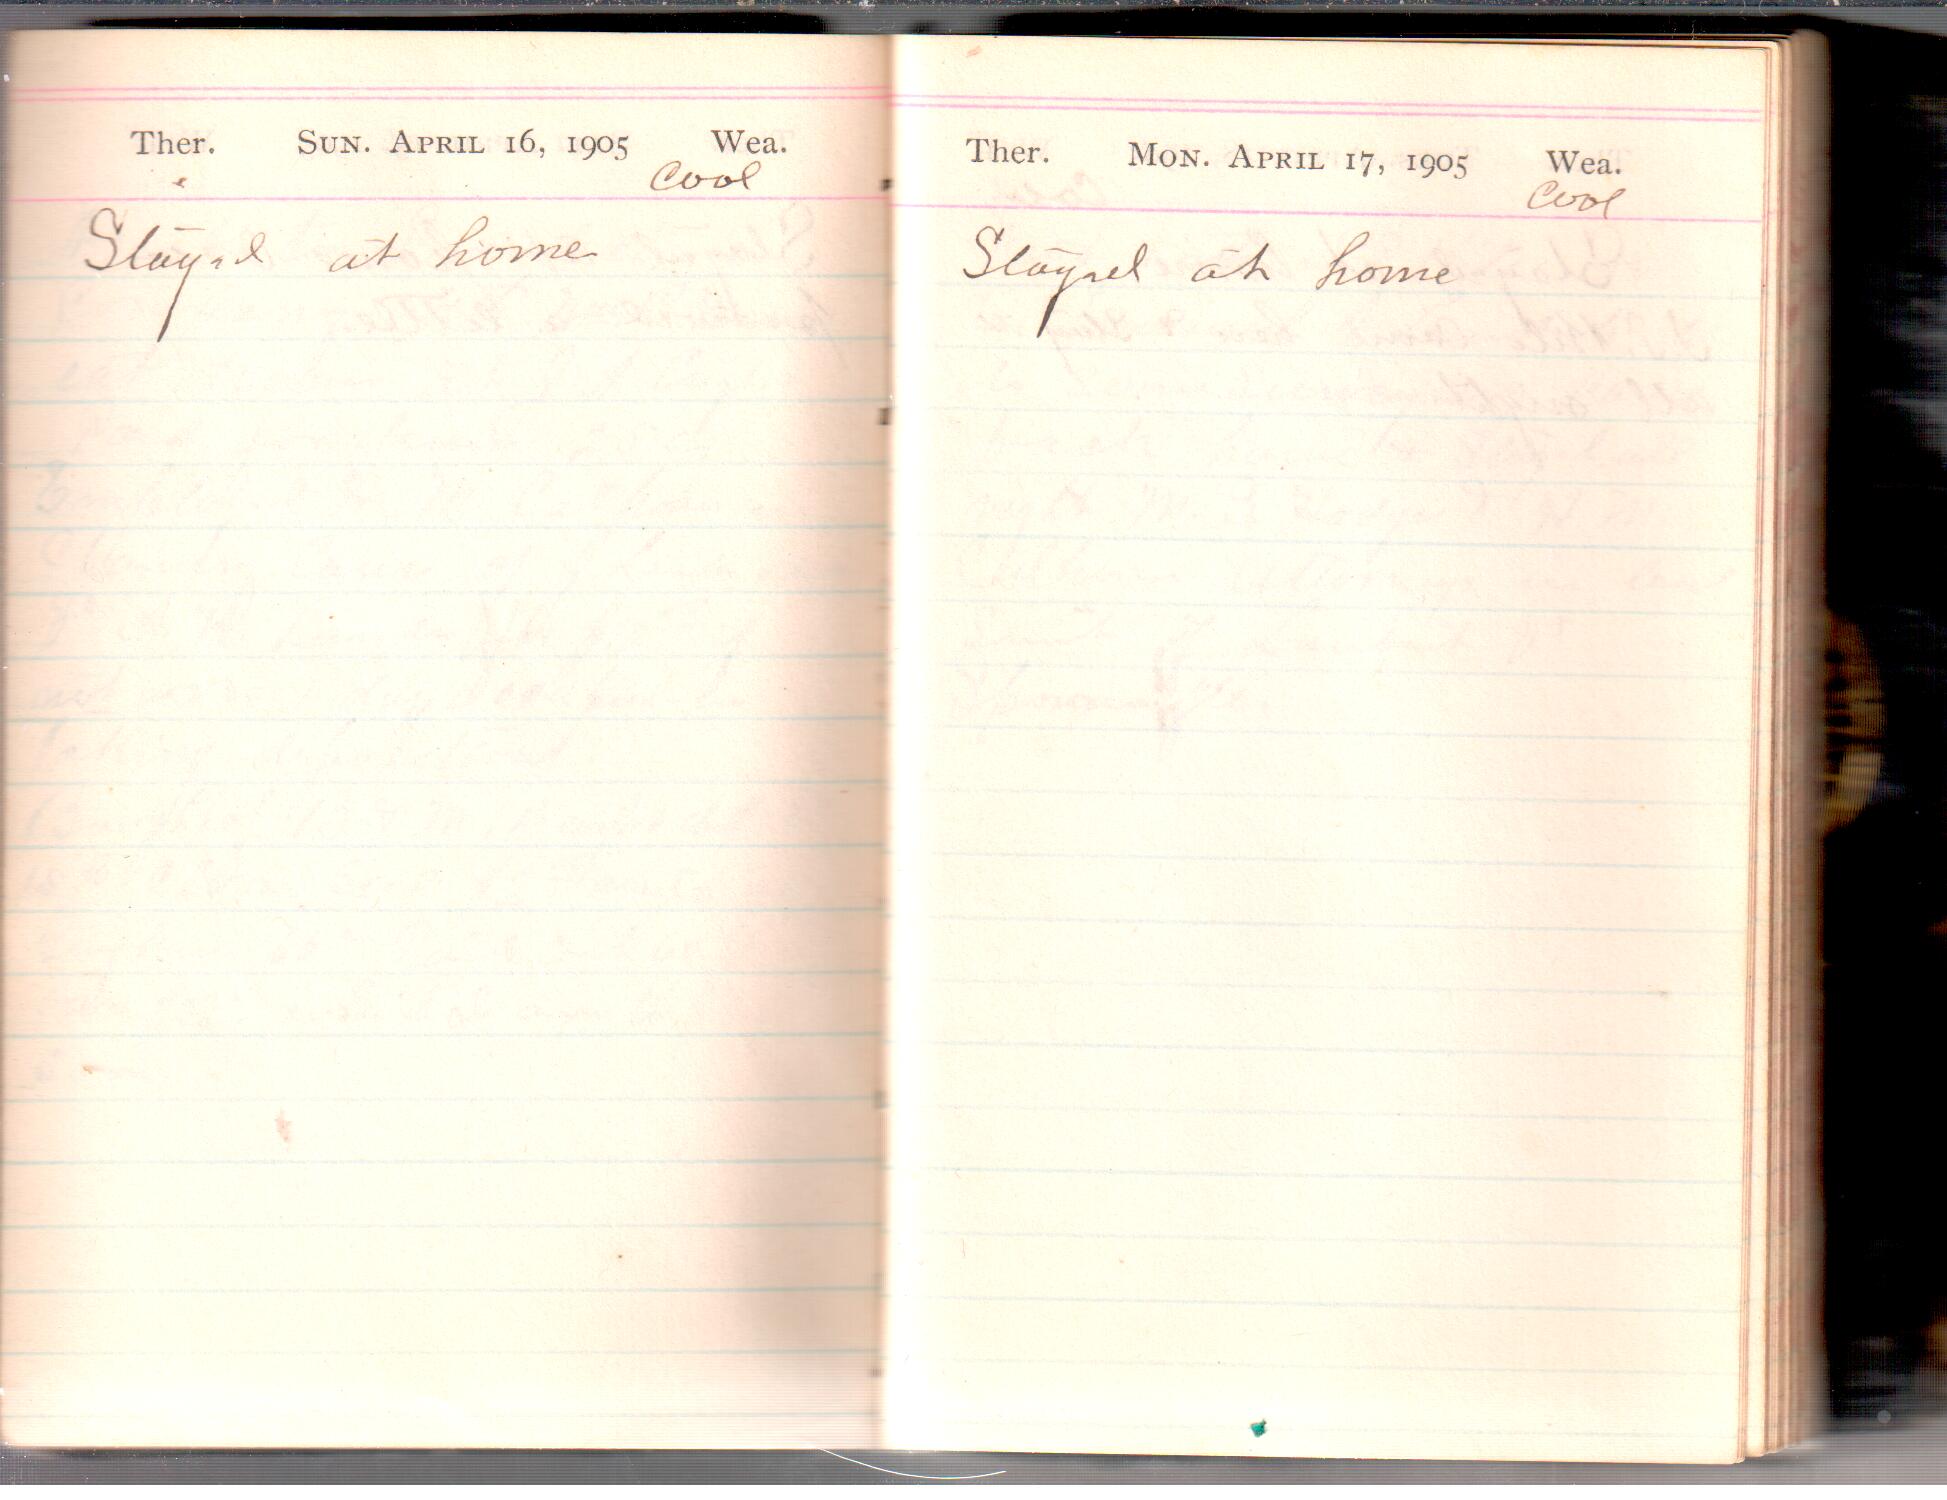 Ther. Sun. April 16, 1905 Wea.
Cool
Stayed at home
Ther. Mon. April 17, 1905 Wea.
Cool
Stayed at home